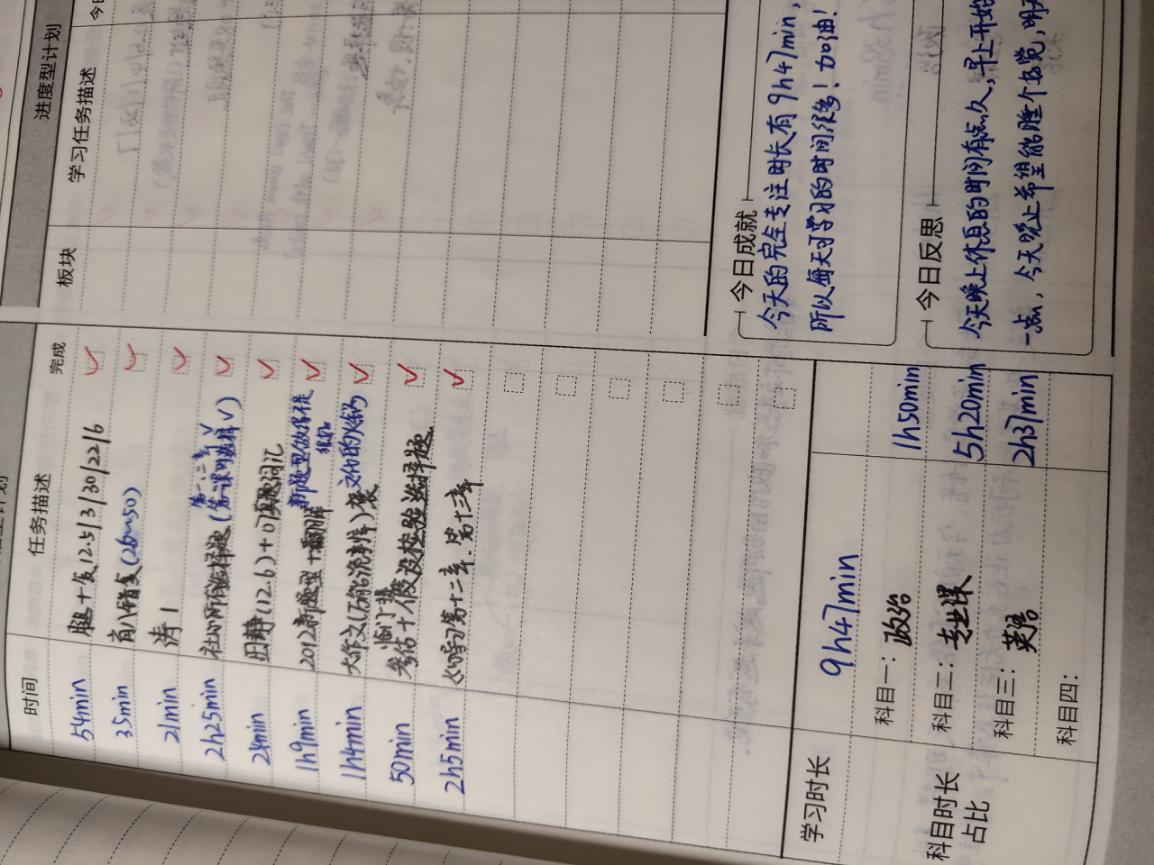 时间 任务描述 完成
54min 腿十复12.5/3/30/22/6
35min 肖八错复(26~50)
21min 涛1
2h25min 社心所有选择题(第一课明选择V)
第一、二章V
24min 田静(12.6)+01真题词汇
1h9min 2012新题型+翻译 新题型做保很
1h14min 大作文(万能流树)袭 文化的火锅
50min 考估十假设检验选择题
2h5min 心学习第十二章、第十三章
进度型计划
板块 学习任务描述
今日成就
今天的完全专注时长有9h47min,
所以每天可学习的时间很多!加油!
今日反思
今天晚上休息的时间有点久,早上开始
一点,今天晚上希望能睡个好觉,明天
学习时长 9h47min
科目时长占比
科目一: 政治 1h50min
科目二: 专业课 5h20min
科目三: 英语 2h37min
科目四: